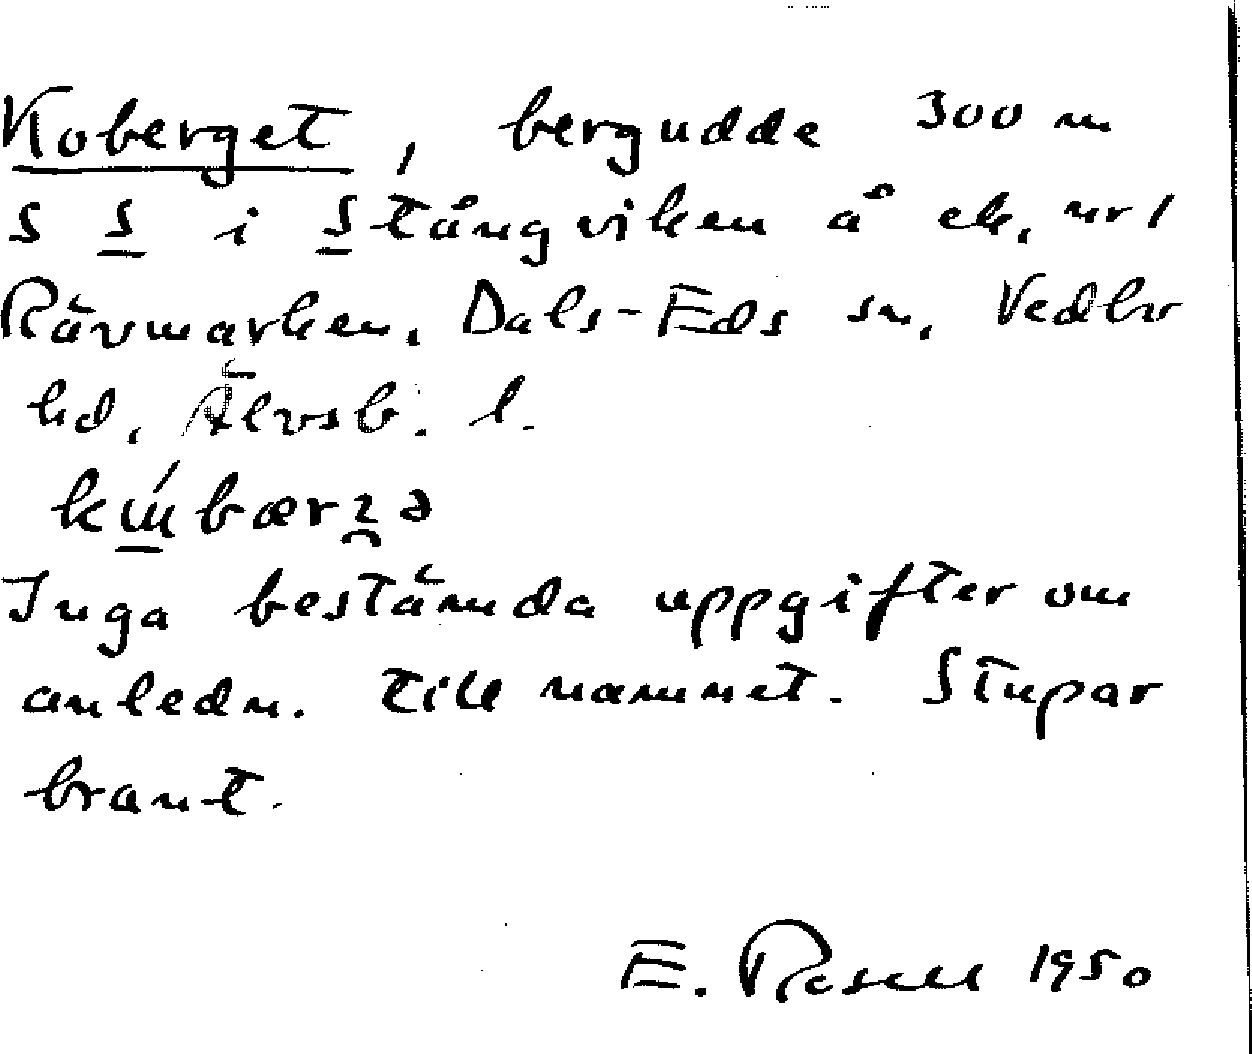 Koberget, bergudde 300 m
S S i Stångviken å ek. nr 1
Rävmarken, Dals-Eds sn, Vedbo
hd, Älvsb. l.
Inga bestämda uppgifter om
anledn. till namnet. Stupar
brant.
E. Rosell 1950